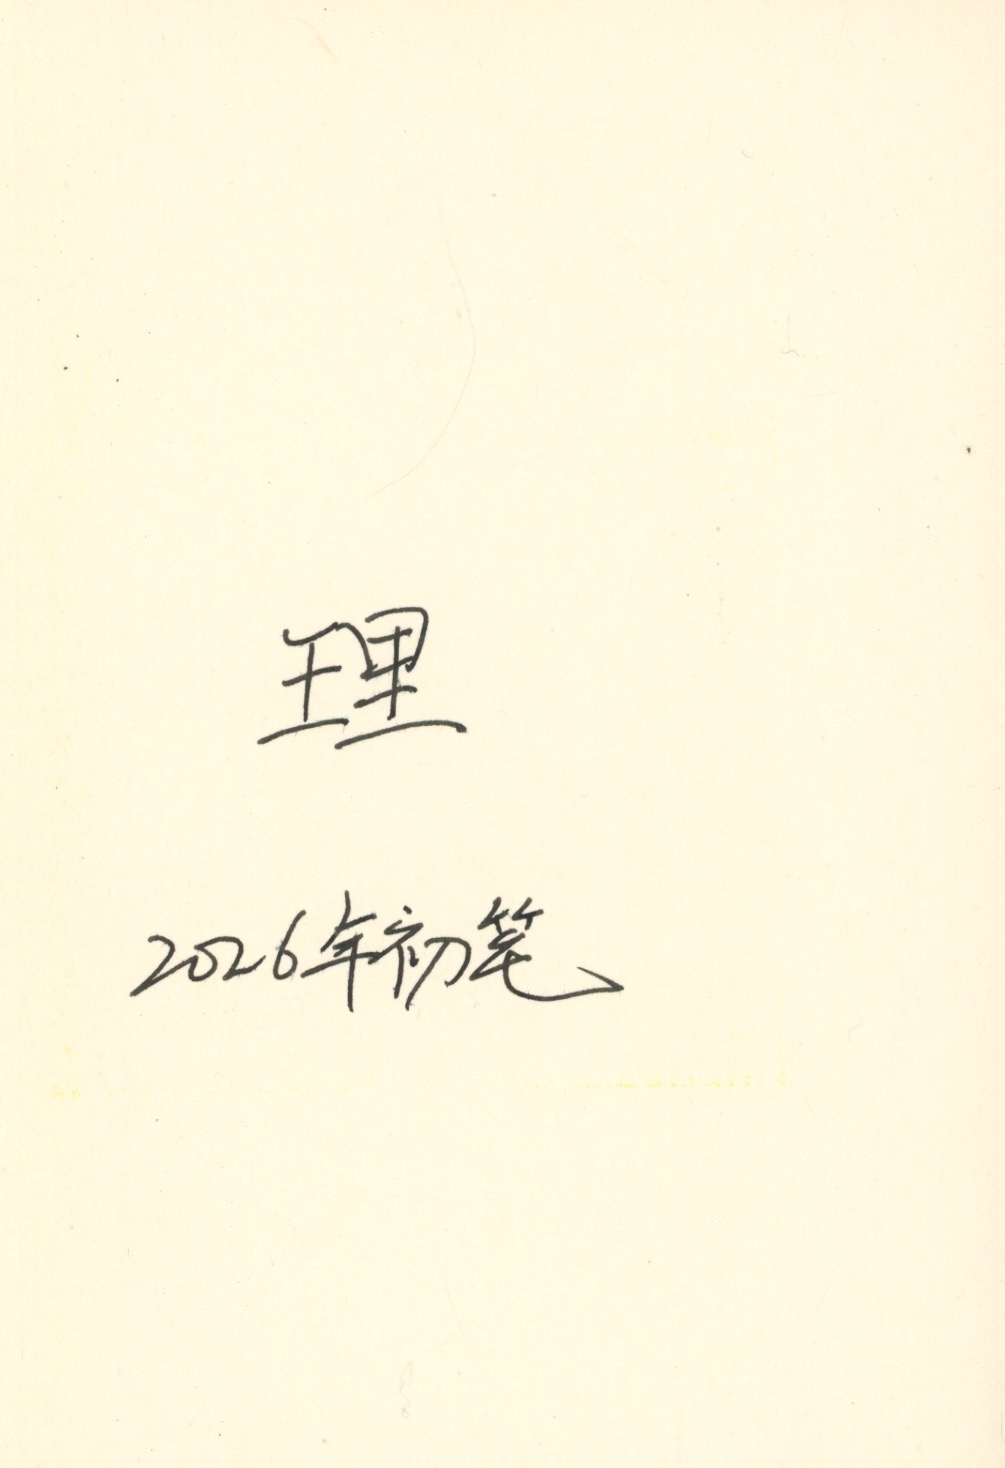 理
2026年初笔